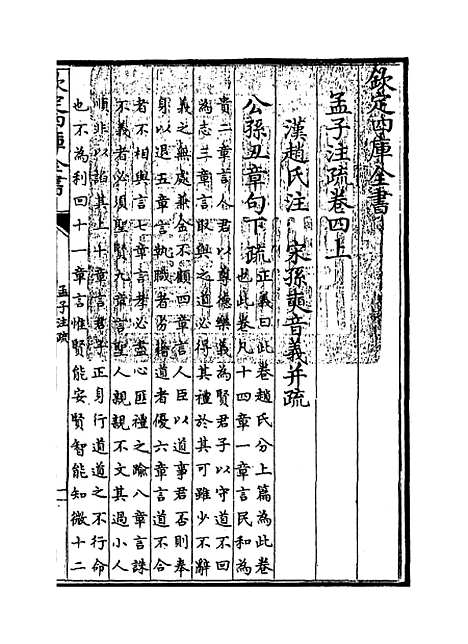 欽定四庫全書
孟子注疏卷四上
漢趙氏注　宋孫奭音義并疏
公孫丑章句下疏
正義曰此卷趙氏分上篇為此卷
也此卷凡十四章一章言民和為
貴二章言人君以尊德樂義為賢君子以守道不回
為志三章言取與之道必得其禮於其可雖少不辭
義之無處兼金不顧四章言人臣以道事君否則奉
身以退五章言執職者劣藉道者優六章言道不合
者不相與言七章言孝必盡心匪禮之踰八章言誅
不義者必須聖賢九章言聖人親親不文其過小人
順非以諂其上十章言君子正身行道道之不行命
也不為利回十一章言惟賢能安賢智能知微十二
欽定四庫全書
孟子注疏
一